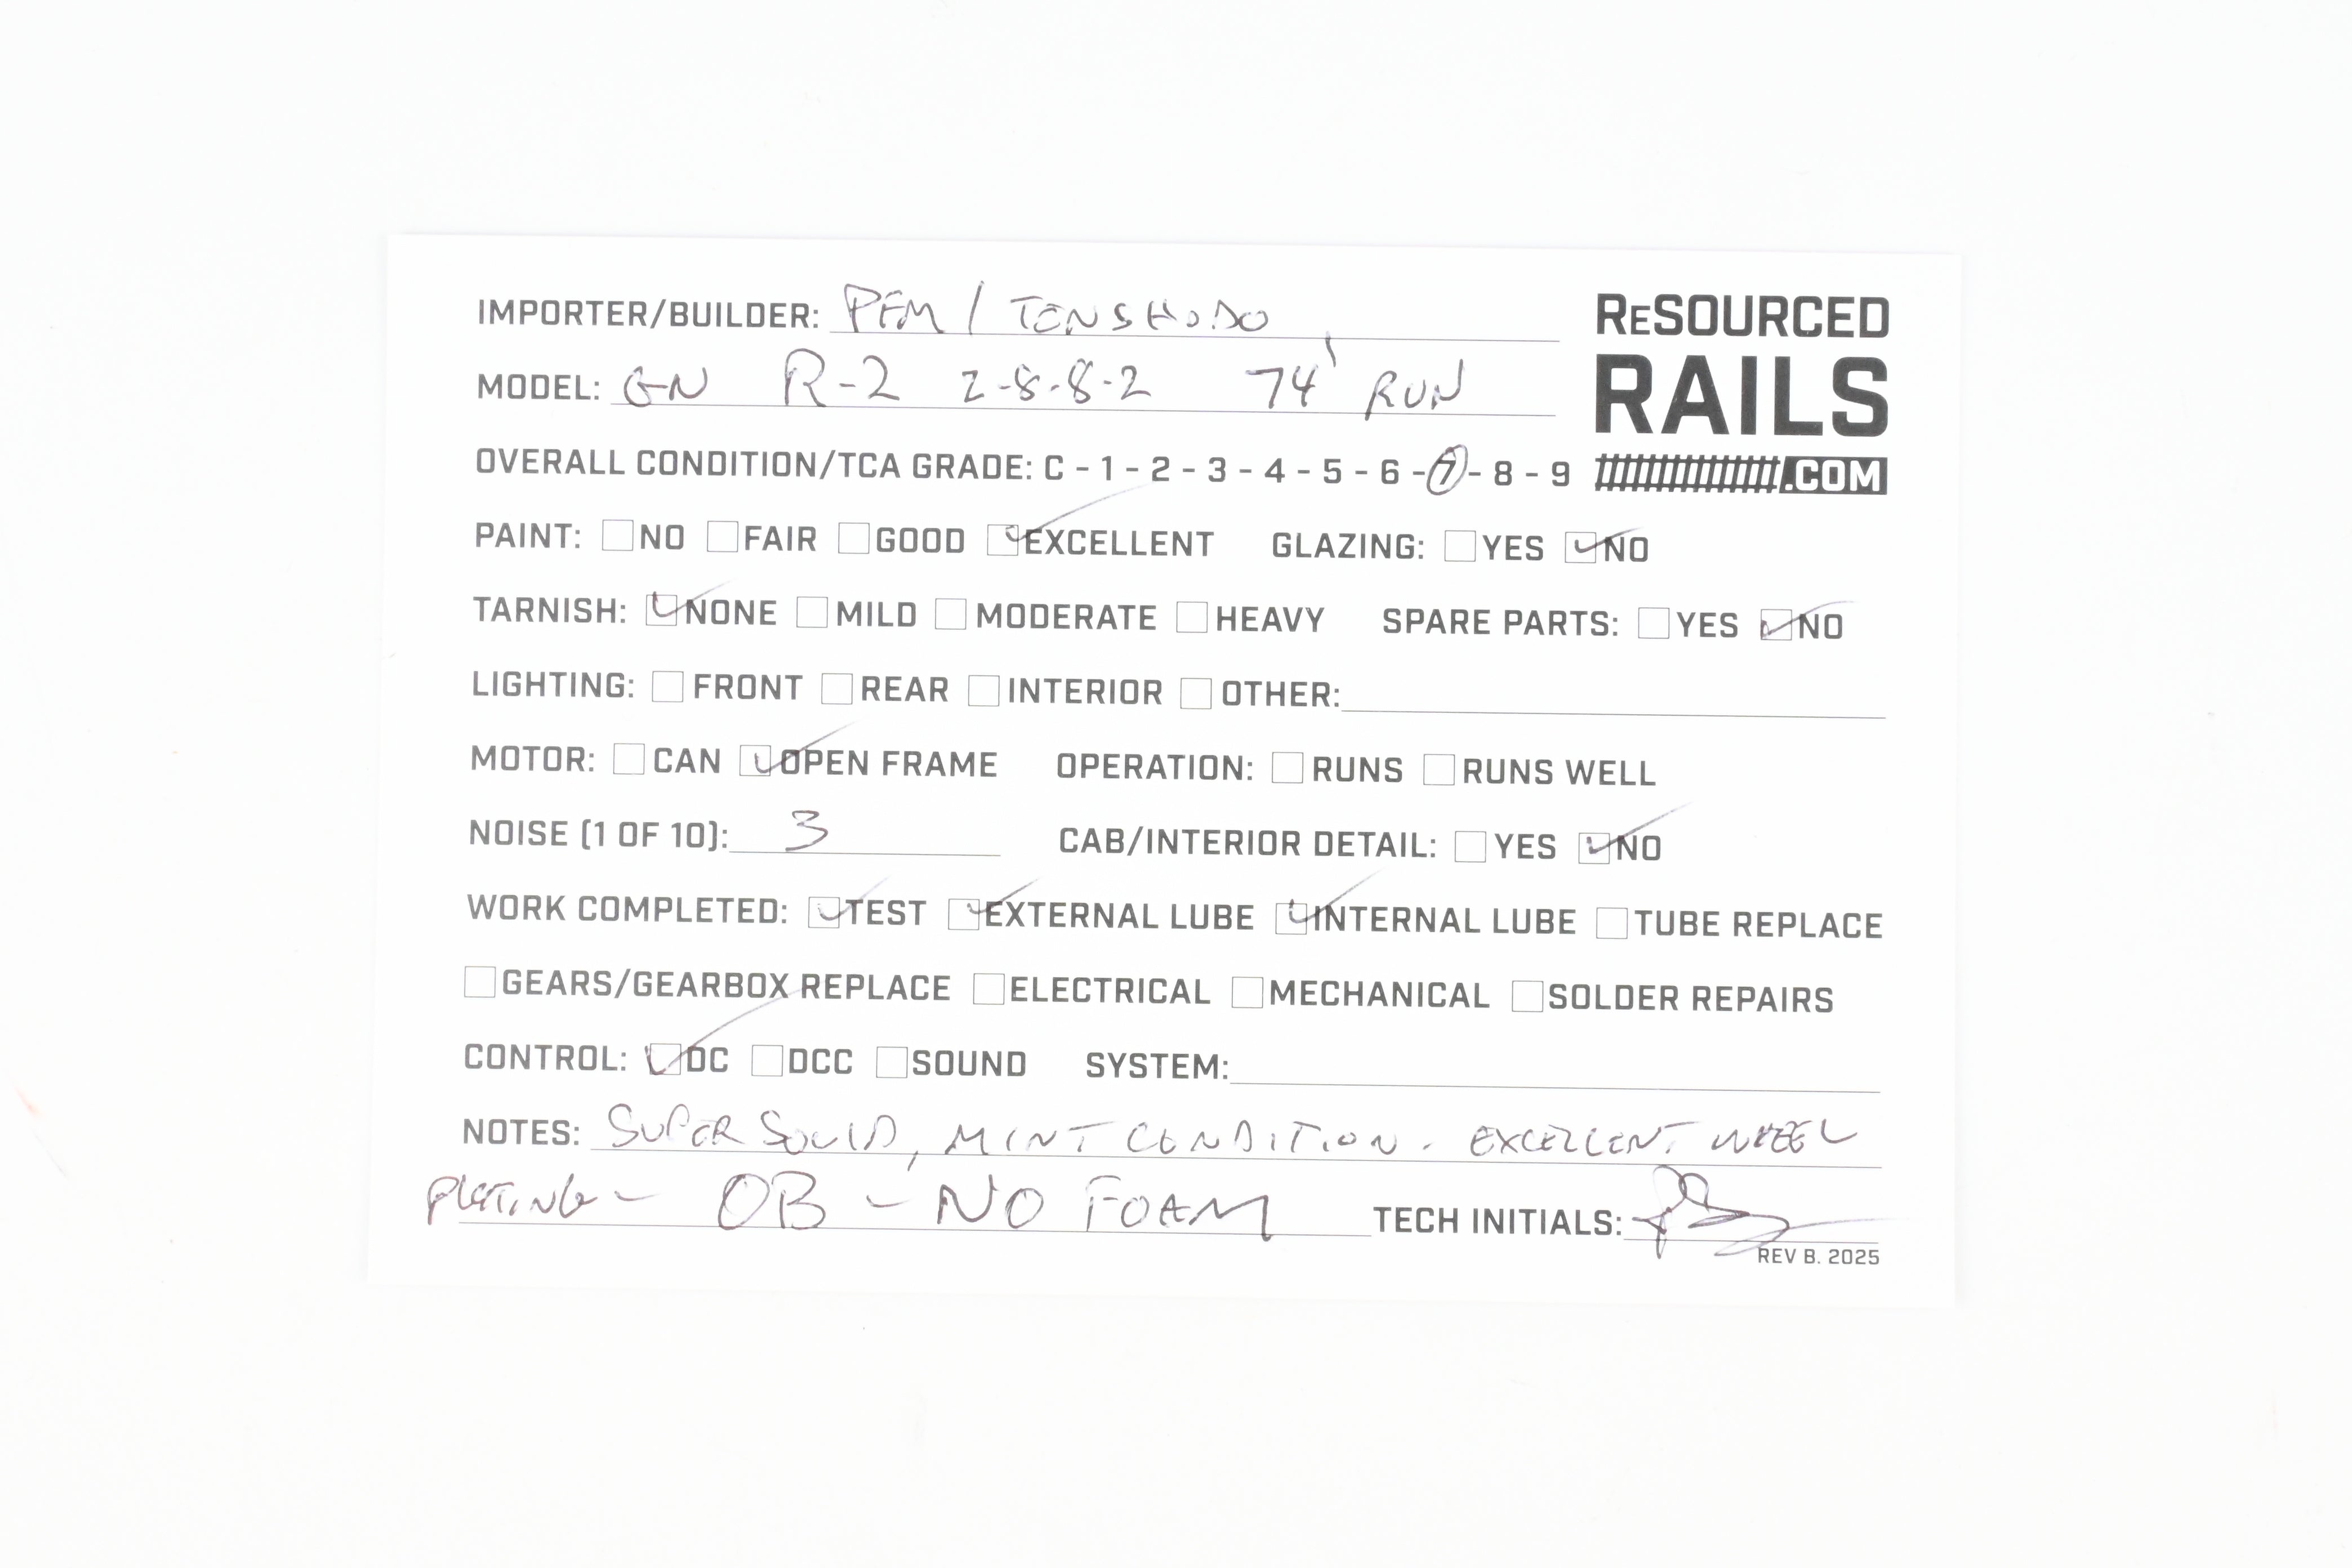 IMPORTER/BUILDER: PFM / TENSHODO
MODEL: GN R-2 2-8-8-2 74' RUN
RESOURCED
RAILS
.COM
OVERALL CONDITION/TCA GRADE: C - 1 - 2 - 3 - 4 - 5 - 6 - 7 - 8 - 9
PAINT: NO FAIR GOOD EXCELLENT GLAZING: YES NO
TARNISH: NONE MILD MODERATE HEAVY SPARE PARTS: YES NO
LIGHTING: FRONT REAR INTERIOR OTHER:
MOTOR: CAN OPEN FRAME OPERATION: RUNS RUNS WELL
NOISE (1 OF 10): 3 CAB/INTERIOR DETAIL: YES NO
WORK COMPLETED: TEST EXTERNAL LUBE INTERNAL LUBE TUBE REPLACE
GEARS/GEARBOX REPLACE ELECTRICAL MECHANICAL SOLDER REPAIRS
CONTROL: DC DCC SOUND SYSTEM:
NOTES: SUPER SOLID, MINT CONDITION. EXCELLENT WHEEL
PLATING - OB - NO FOAM TECH INITIALS:
REV B. 2025